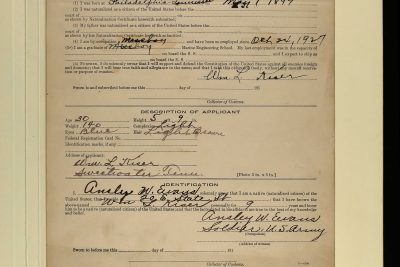 (a) I was born at Philadelphia 1897
by Naturalization Certificate herewith submitted;
(b) My father was naturalized as a citizen of the United States before
as shown by his Naturalization Certificate herewith submitted;
(c) I am by occupation and have been employed since Dec 24, 1927
(d) I am a graduate of Marine Engineering School. My last employment was in the capacity of
on board the S. S. and I expect to ship as
on board the S. S.
Further, I do solemnly swear that I will support and defend the Constitution of the United States against all enemies foreign
and domestic; that I will bear true faith and allegiance to the same; and that I take this obligation freely, without any mental reservation
or purpose of evasion.
Wm. L. Kiser
Sworn to and subscribed before me this day of 191
Collector of Customs.
DESCRIPTION OF APPLICANT
Age 30 Height 5 9
Weight 140 Complexion Light
Eyes Blue Hair Light Brown
Federal Registration Card No.
Identification marks, if any
Address of applicant:
Wm. L. Kiser
Sweetwater Tenn.
[Photo 3 in. x 3 in.]
IDENTIFICATION
I, Ansley W. Evans solemnly swear that I am a native (naturalized citizen) of the
United States; that 326 State St that I have known the
above-named Wm L Kiser personally for 9
him to be a native (naturalized citizen) of the United States, and that the facts stated in his affidavit are true to the best of my knowledge and
belief.
Ansley W. Evans
Soldier, U.S. Army
(Occupation)
(Address of witness)
Sworn to before me this day of , 191
Collector of Customs.